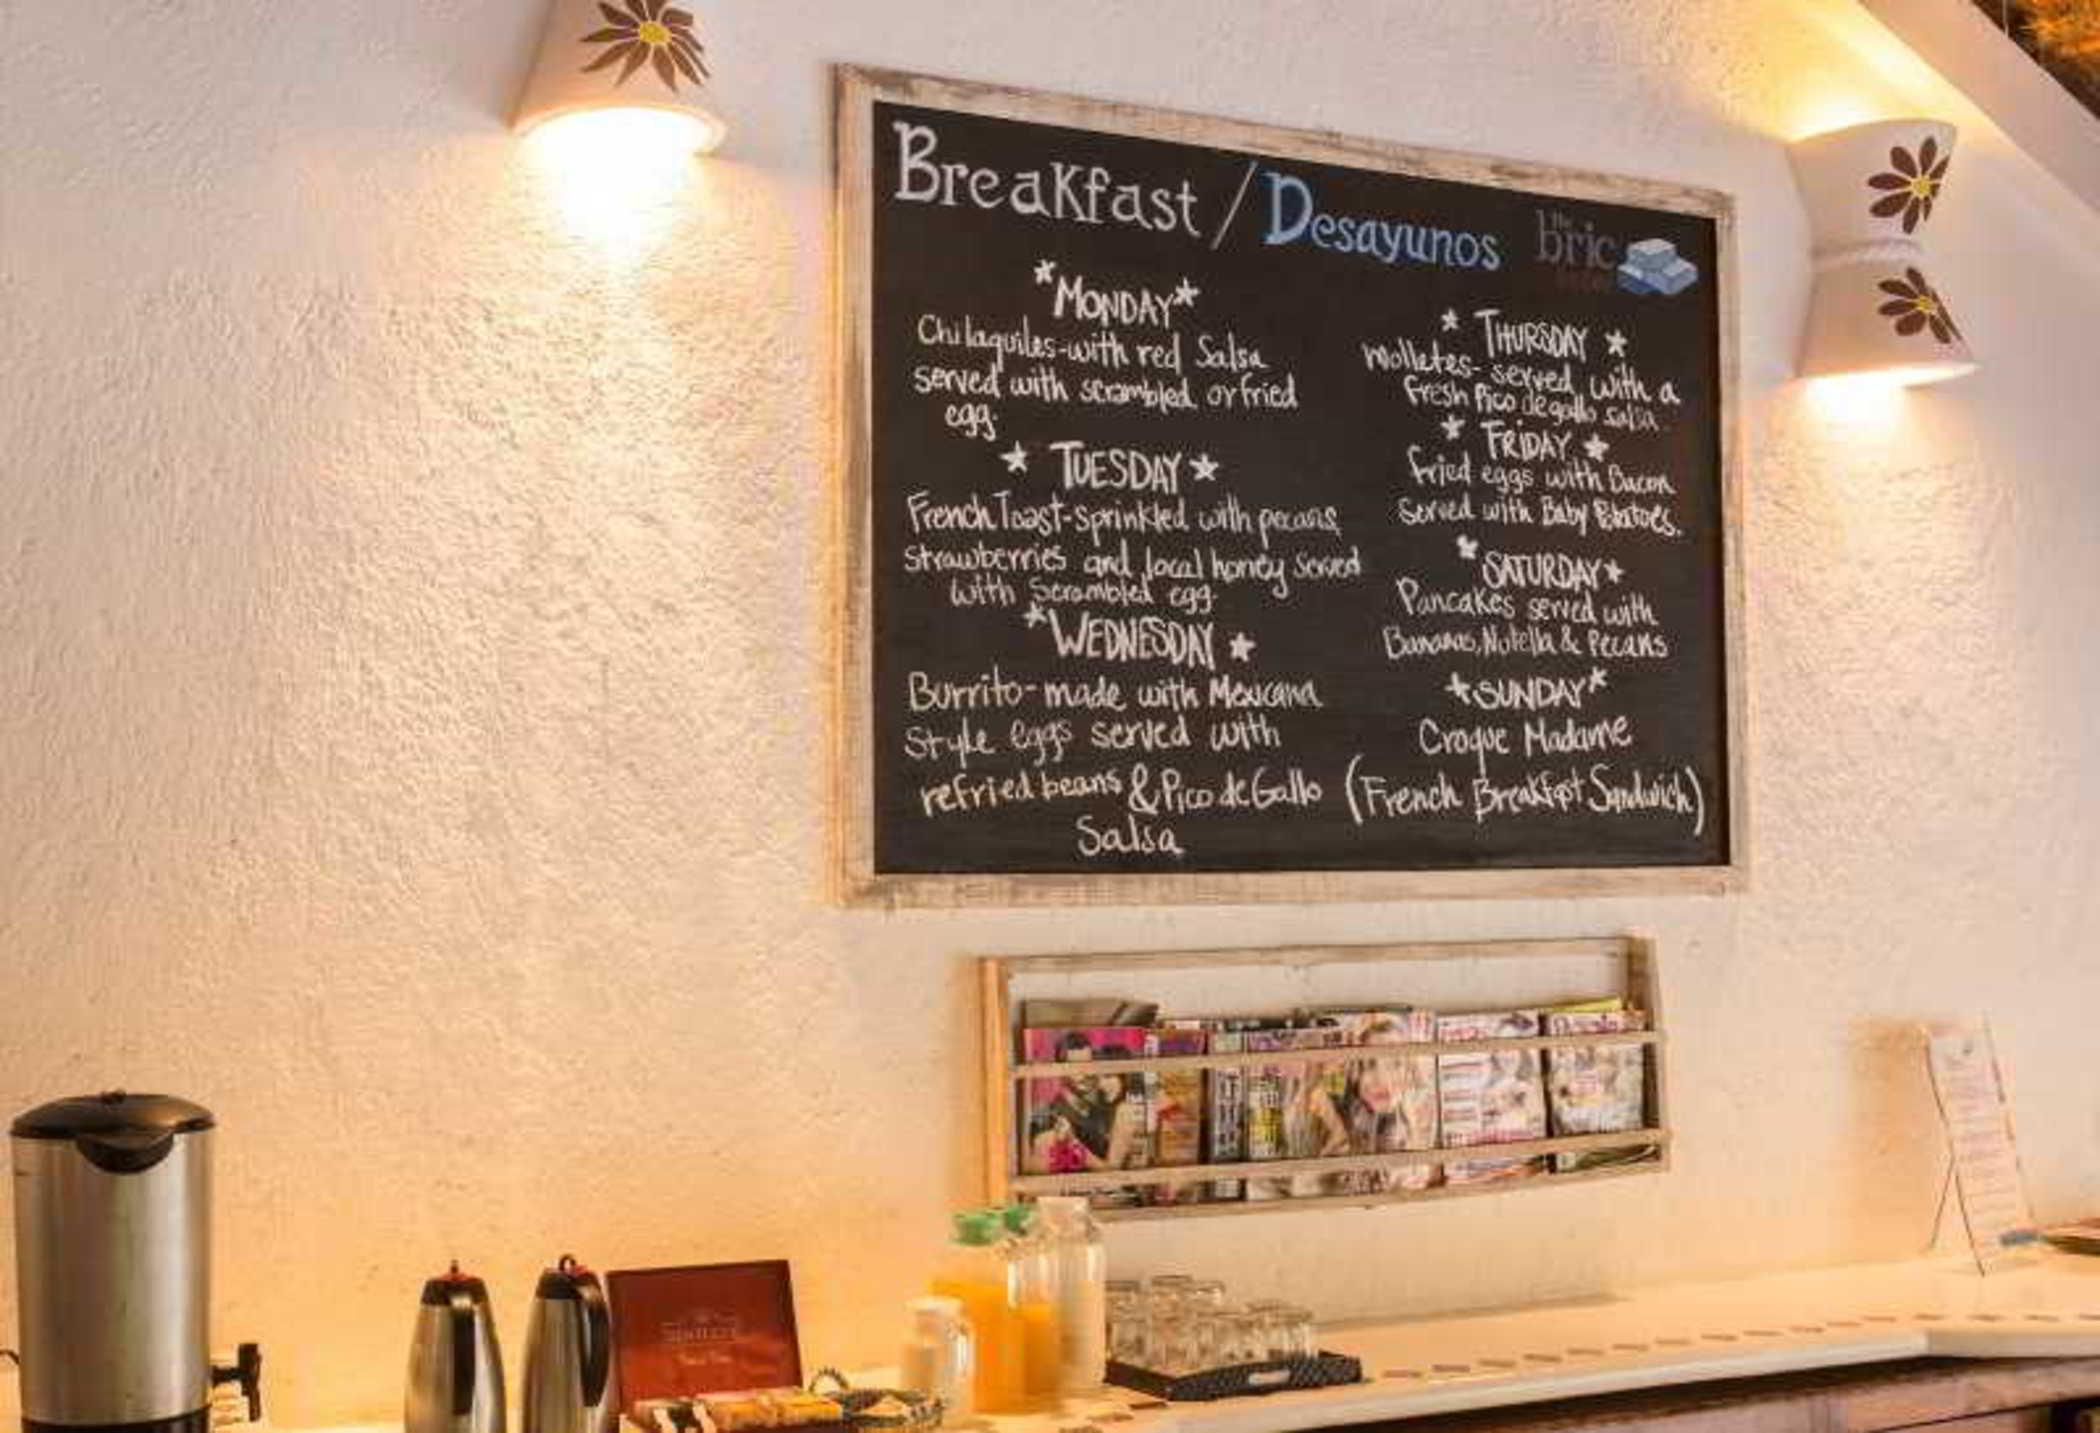 Breakfast / Desayunos
the bric
*MONDAY*
Chilaquiles-with red Salsa
served with scrambled or fried
egg.
* TUESDAY *
French Toast-sprinkled with pecans,
strawberries and local honey served
with Scrambled egg.
*WEDNESDAY *
Burrito-made with Mexicana
Style eggs served with
refried beans & Pico de Gallo
Salsa
* THURSDAY *
Molletes- served with a
fresh Pico de gallo salsa
* FRIDAY *
fried eggs with Bacon
served with Baby Potatoes.
*SATURDAY*
Pancakes served with
Bananas, Nutella & Pecans
*SUNDAY*
Croque Madame
(French Breakfast Sandwich)